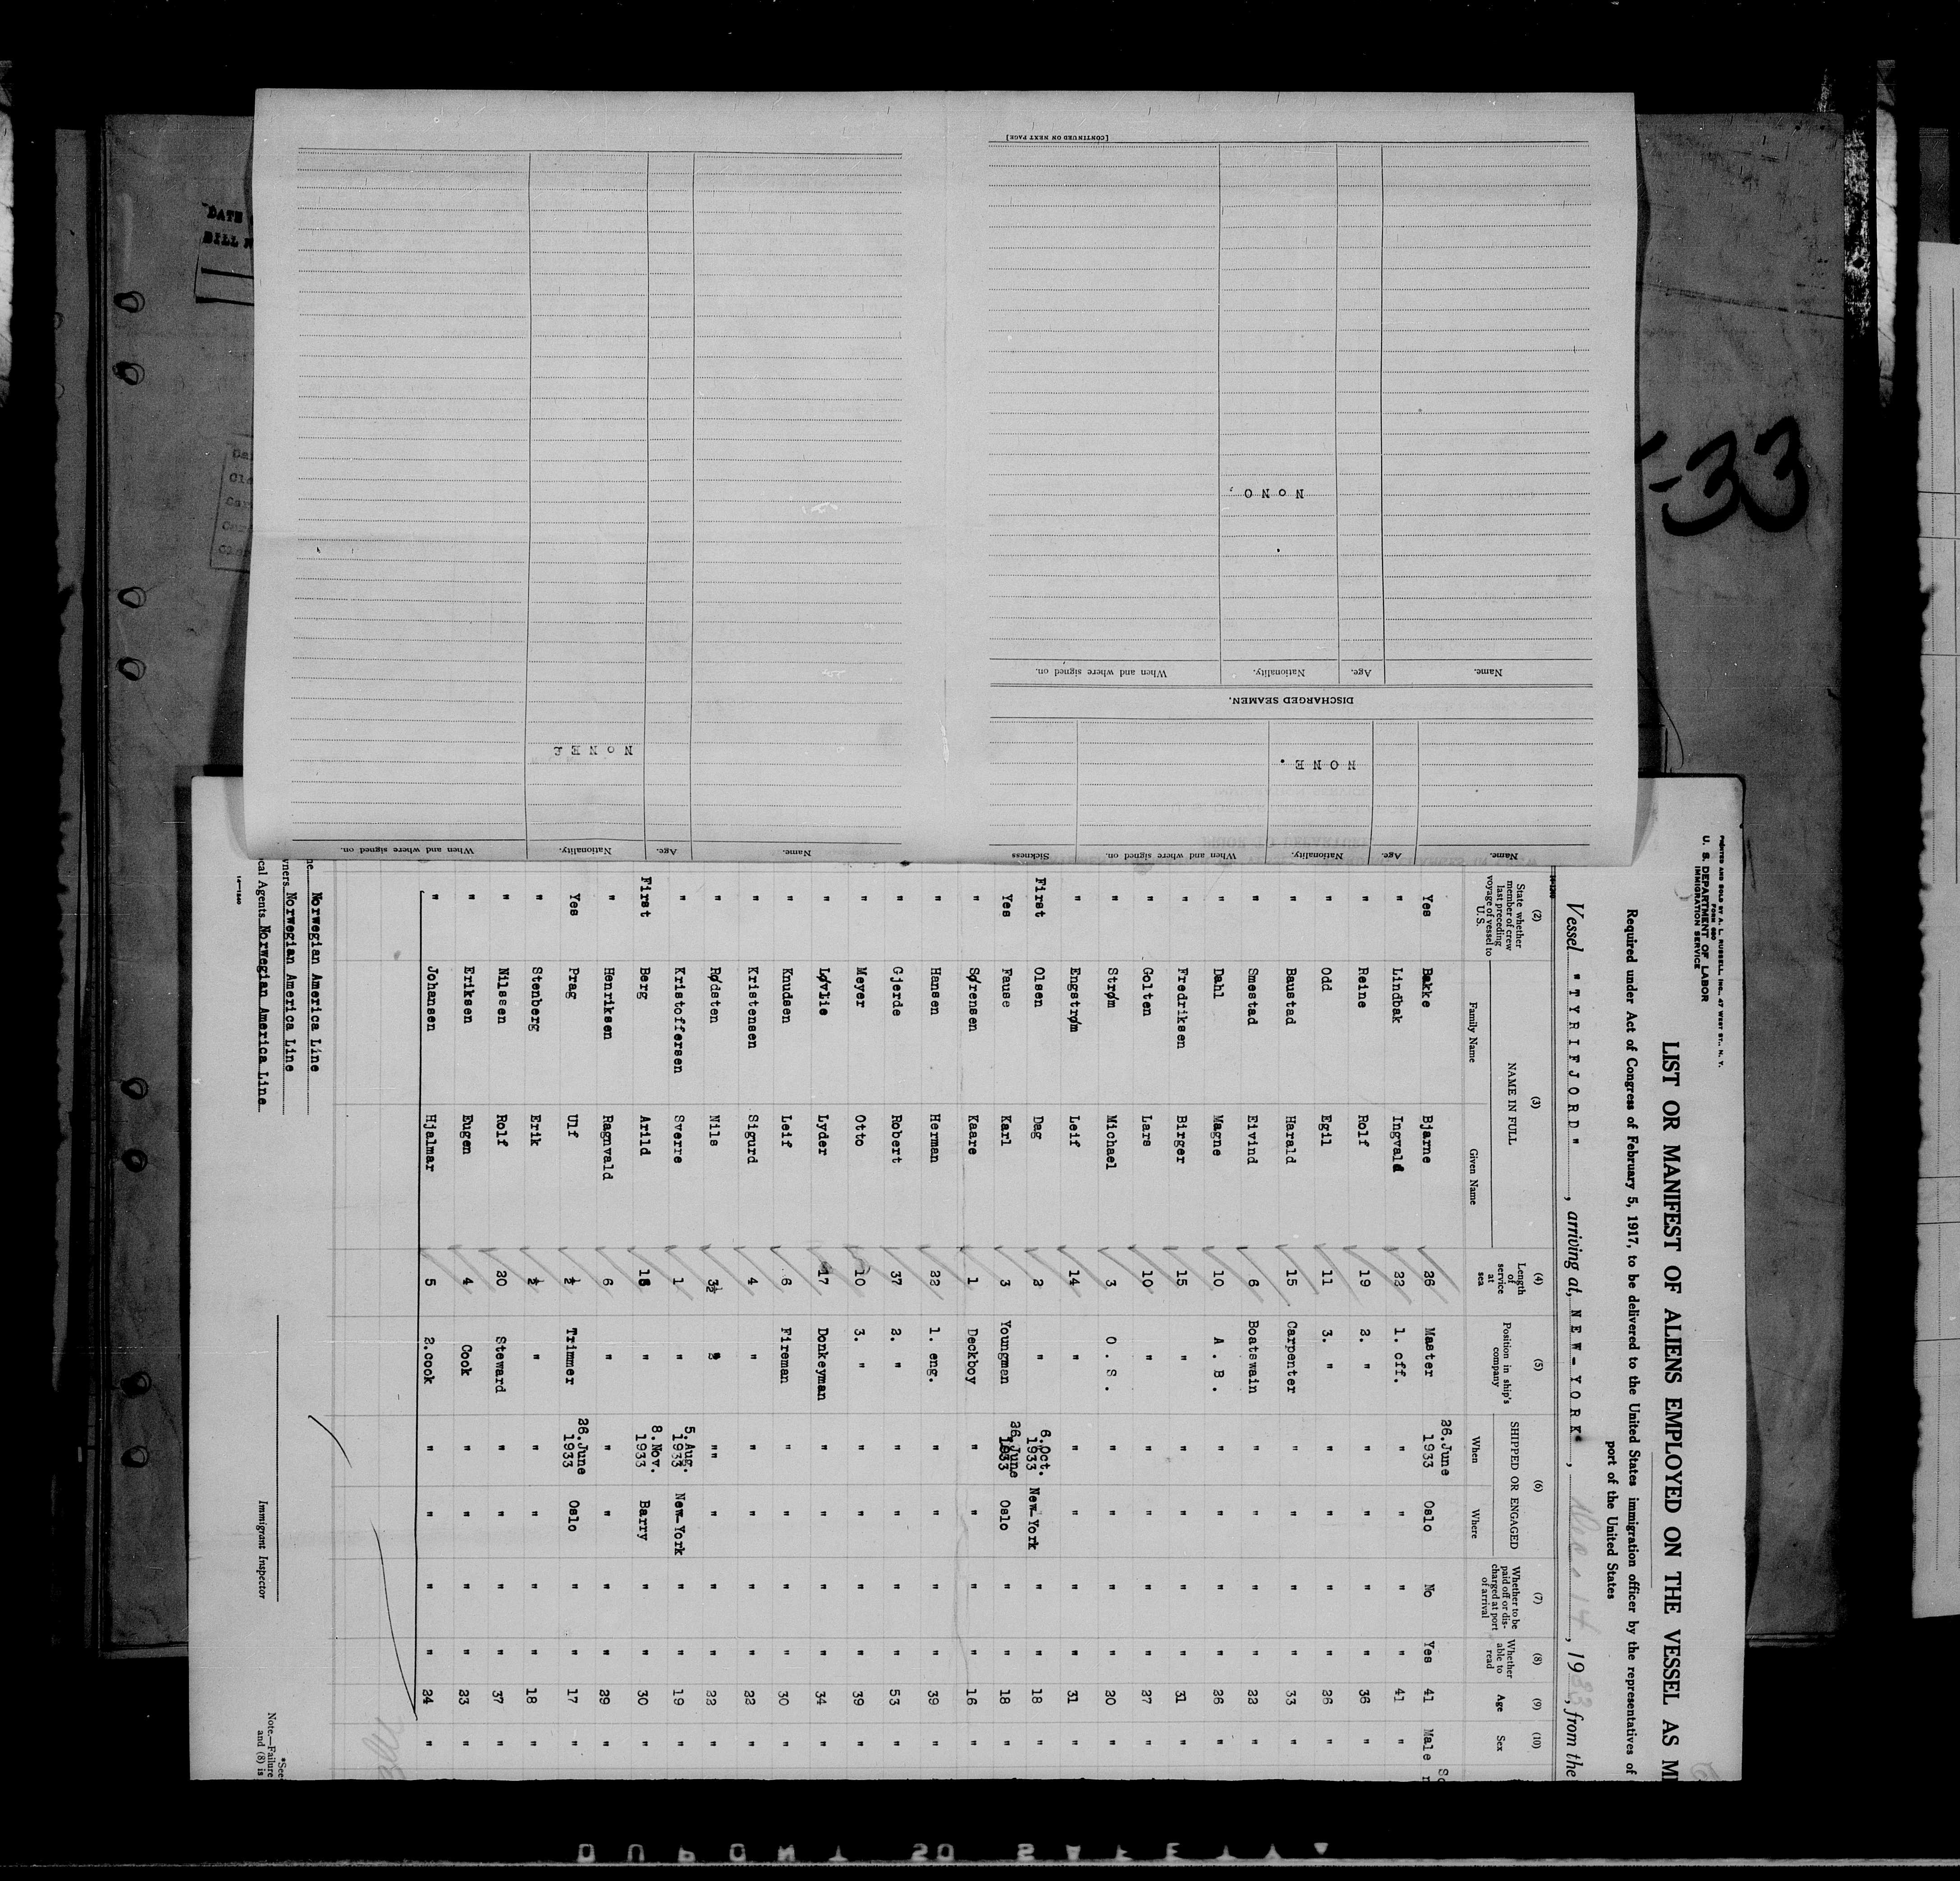 [CONTINUED ON NEXT PAGE]
N O N O ,
Name. Age. Nationality. When and where signed on.
DISCHARGED SEAMEN.
N O N E .
Name. Age. Nationality. When and where signed on. Sickness
N O N E E
Name. Age. Nationality. When and where signed on.
-33
DATE
BILL
PRINTED AND SOLD BY A. L. RUSSELL, INC., 47 WEST ST., N. Y.
FORM 680
U. S. DEPARTMENT OF LABOR
IMMIGRATION SERVICE
LIST OR MANIFEST OF ALIENS EMPLOYED ON THE VESSEL AS M
Required under Act of Congress of February 5, 1917, to be delivered to the United States immigration officer by the representatives of
port of the United States
Vessel " T Y R I F J O R D " , arriving at, N E W - Y O R K , Dec. 14 , 1933, from the
(2) (3) (4) (5) (6) (7) (8) (9) (10)
State whether member of crew last preceding voyage of vessel to U. S. NAME IN FULL Family Name Given Name Length of service at sea Position in ship's company SHIPPED OR ENGAGED When Where Whether to be paid off or discharged at port of arrival Whether able to read Age Sex
Yes Bakke Bjarne 26 Master 26.June 1933 Oslo No Yes 41 Male
" Lindbak Ingvald 22 1. off. " " " " 41 "
" Reine Rolf 19 2. " " " " " 36 "
" Odd Egil 11 3. " " " " " 26 "
" Baustad Harald 15 Carpenter " " " " 33 "
" Smestad Eivind 6 Boatswain " " " " 22 "
" Dahl Magne 10 A . B . " " " " 26 "
" Fredriksen Birger 15 " " " " " 31 "
" Golten Lars 10 " " " " " 27 "
" Strøm Michael 3 O . S . " " " " 20 "
" Engstrøm Leif 14 " " " " " 31 "
First Olsen Dag 2 " 6.Oct. 1933 New-York " " 18 "
Yes Fause Karl 3 Youngman 26.June 1933 Oslo " " 18 "
" Sørensen Kaare 1 Deckboy " " " " 16 "
" Hansen Herman 22 1. eng. " " " " 39 "
" Gjerde Robert 37 2. " " " " " 53 "
" Meyer Otto 10 3. " " " " " 39 "
" Løvlie Lyder 17 Donkeyman " " " " 34 "
" Knudsen Leif 6 Fireman " " " " 30 "
" Kristensen Sigurd 4 " " " " " 22 "
" Rødsten Nils 3½ " "" " " " 22 "
" Kristoffersen Sverre 1 " 5.Aug. 1933 New-York " " 19 "
First Berg Arild " 8.Nov. 1933 Barry " " 30 "
" Henriksen Ragnvald 6 " " " " " 29 "
Yes Prag Ulf ½ Trimmer 26.June 1933 Oslo " " 17 "
" Stenberg Erik ½ " " " " " 18 "
" Nilssen Rolf 20 Steward " " " " 37 "
" Eriksen Eugen 4 Cook " " " " 23 "
" Johansen Hjalmar 5 2.cook " " " " 24 "
ne Norwegian America Line
wners Norwegian America Line
cal Agents Norwegian America Line
Immigrant Inspector
*See
Note.—Failure
and (8) is
DUPONT SAFETY